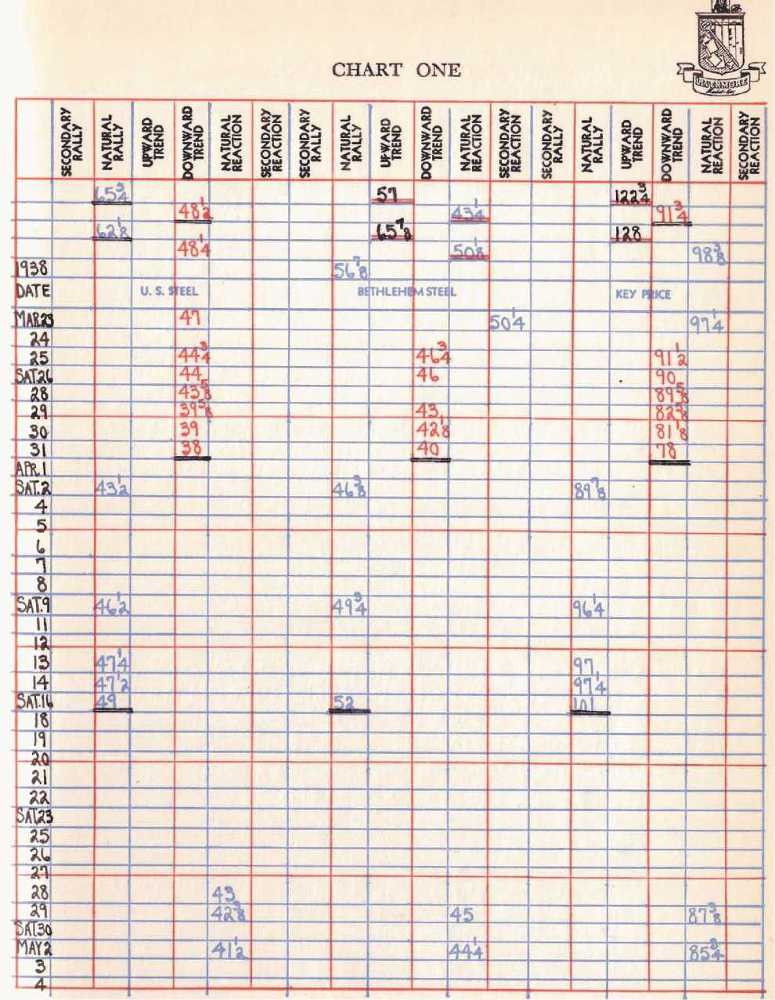 STRATHMORE
CHART ONE
SECONDARY RALLY NATURAL RALLY UPWARD TREND DOWNWARD TREND NATURAL REACTION SECONDARY REACTION SECONDARY RALLY NATURAL RALLY UPWARD TREND DOWNWARD TREND NATURAL REACTION SECONDARY REACTION SECONDARY RALLY NATURAL RALLY UPWARD TREND DOWNWARD TREND NATURAL REACTION SECONDARY REACTION
65 3/4 57 122 3/4
48 1/2 43 1/4 91 3/4
62 1/8 65 7/8 128
48 1/4 50 1/8 98 3/8
1938 56 7/8
DATE U. S. STEEL BETHLEHEM STEEL KEY PRICE
MAR23 47 50 1/4 97 1/4
24
25 44 3/4 46 3/4 91 1/2
SAT.26 44 46 90
28 43 5/8 89 5/8
29 39 5/8 43 82 5/8
30 39 42 1/8 81 1/8
31 38 40 78
APR.1
SAT.2 43 1/2 46 3/8 89 7/8
4
5
6
7
8
SAT.9 46 1/2 49 3/4 96 1/4
11
12
13 47 1/4 97
14 47 1/2 97 1/4
SAT.16 49 52 101
18
19
20
21
22
SAT.23
25
26
27
28 43
29 42 3/8 45 87 3/8
SAT.30
MAY 2 41 1/2 44 1/4 85 3/4
3
4